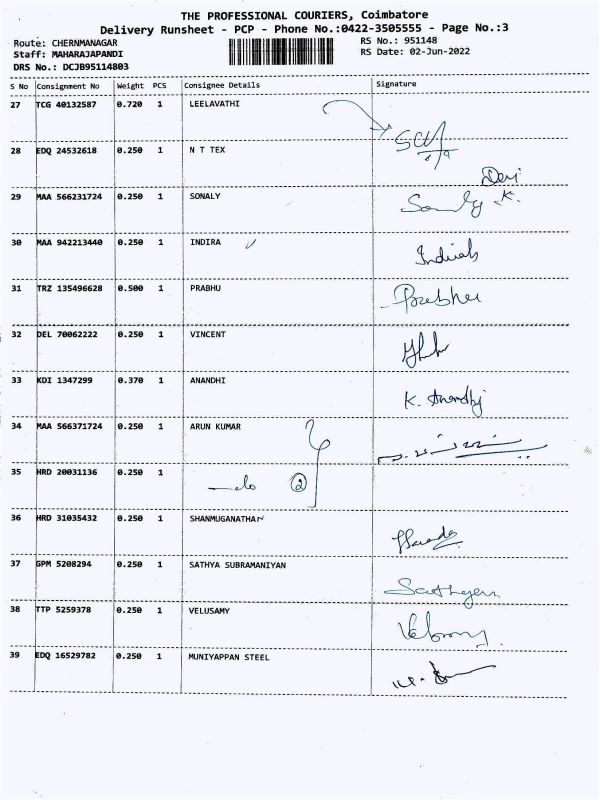 THE PROFESSIONAL COURIERS, Coimbatore
Delivery Runsheet - PCP - Phone No.:0422-3505555 - Page No.:3
Route: CHERNMANAGAR
RS No.: 951148
Staff: MAHARAJAPANDI
RS Date: 02-Jun-2022
DRS No.: DCJB95114803
S No Consignment No Weight PCS Consignee Details Signature
27 TCG 40132587 0.720 1 LEELAVATHI
28 EDQ 24532618 0.250 1 N T TEX
Devi
29 MAA 566231724 0.250 1 SONALY
K.
30 MAA 942213440 0.250 1 INDIRA
31 TRZ 135496628 0.500 1 PRABHU Prabhu
32 DEL 70062222 0.250 1 VINCENT
33 KDI 1347299 0.370 1 ANANDHI K. Anandhi
34 MAA 566371724 0.250 1 ARUN KUMAR
35 HRD 20031136 0.250 1 —do ②
36 HRD 31035432 0.250 1 SHANMUGANATHAN
37 GPM 5208294 0.250 1 SATHYA SUBRAMANIYAN
38 TTP 5259378 0.250 1 VELUSAMY
39 EDQ 16529782 0.250 1 MUNIYAPPAN STEEL